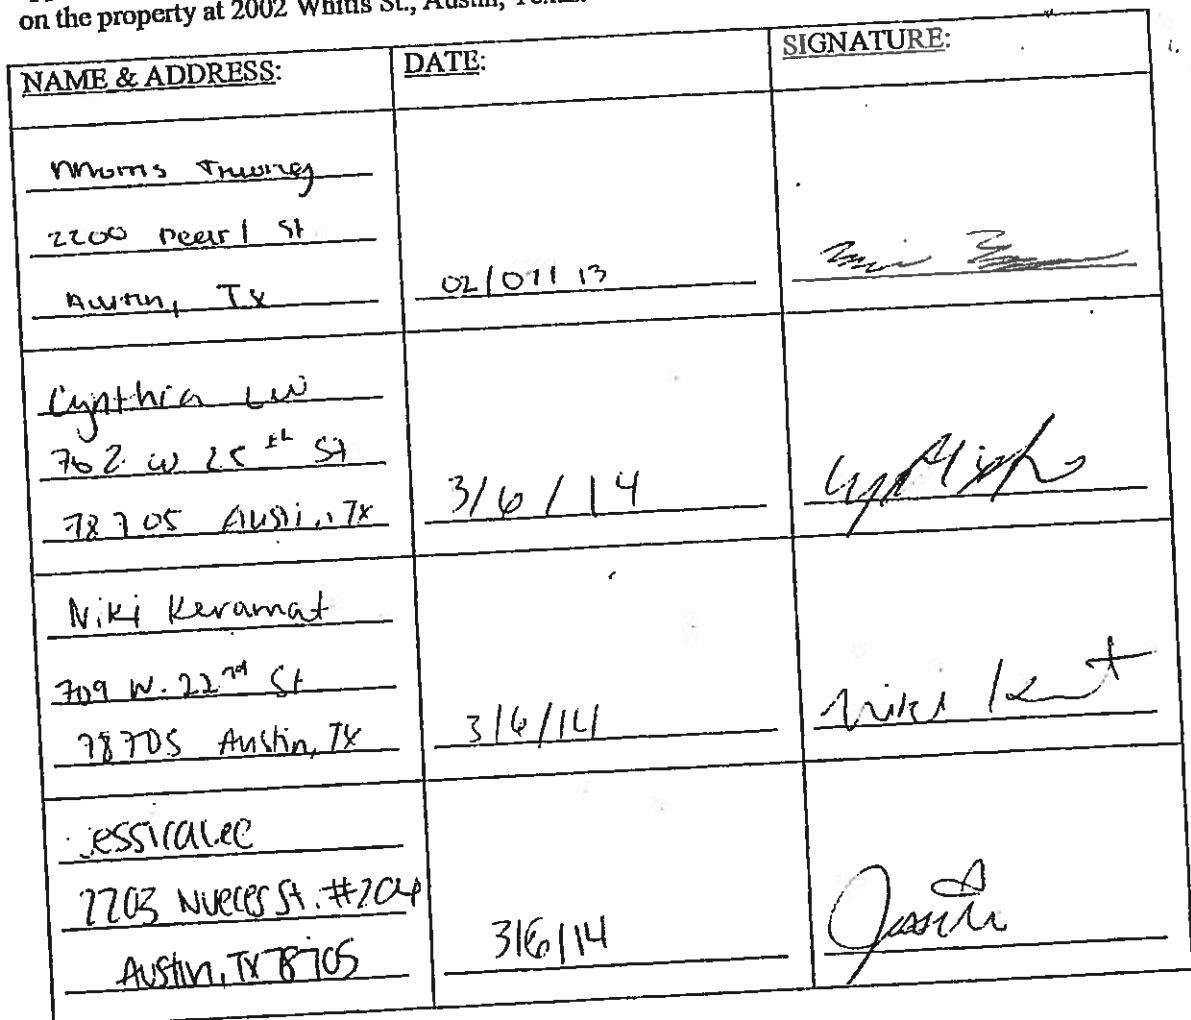 on the property at 2002 Whitis St., Austin, Texas.
NAME & ADDRESS:
DATE:
SIGNATURE:
Morris Truong
2200 Pearl St
Austin, TX
02/07/13
Cynthia
762 W 25th St
78705 Austin, TX
3/6/14
Niki Keramat
709 W. 22nd St
78705 Austin, TX
3/6/14
Niki
Jessica Lee
2203 Nueces St. #204
Austin, TX 78705
3/6/14